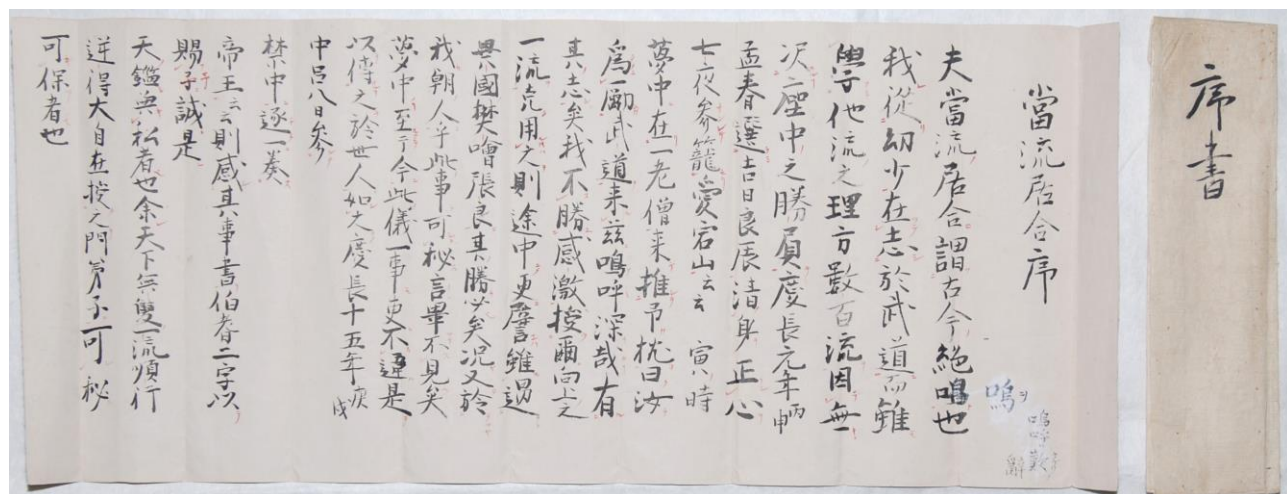 序書
當流居合序
嗚ヲ
嗚呼歎
辭
夫當流居合謂古今絶鳴也
我從幼少在志於武道而雖
學他流之理方數百流因無
中之勝負慶長元年丙申
孟春選吉日良辰清身正心
七夜参籠愛宕山云云 寅時
夢中在一老僧来推予枕曰汝
爲一勵武道来茲嗚呼深哉有
其志矣我不勝感激授爾向上之
一流克用之則途中更譬雖遇
異國樊噲張良其勝必矣况又於
我朝人乎此事可秘言畢不見矣
夢中至于今此儀一事更不違是
以傳之於世人如大慶長十五年庚戌
中呂八日参
禁中逐一奏
帝王云云則感其事書伯耆二字以
賜予誠是
天鑑無私者也余天下無雙一流順行
逆得大自在按之門弟子可秘
可保者也